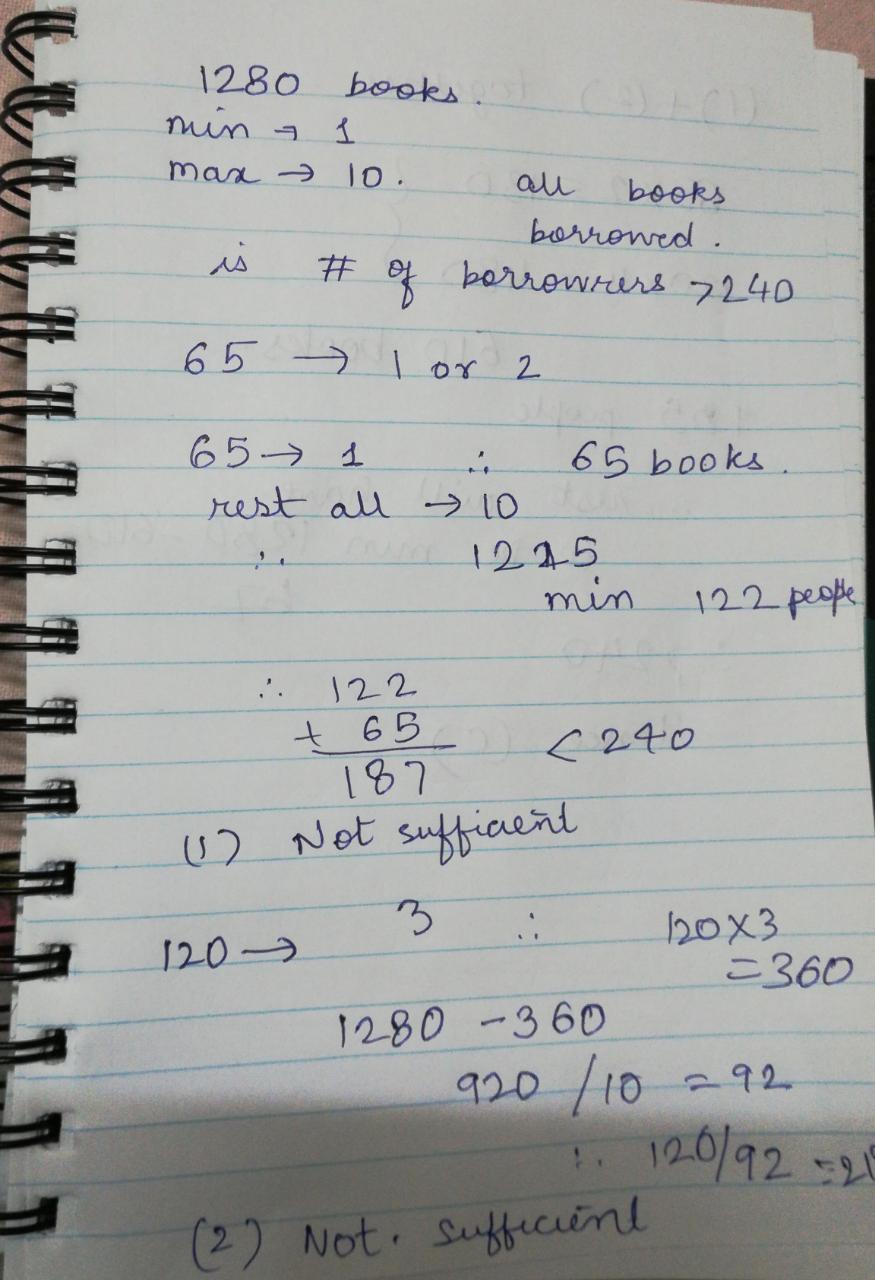 1280 books.
min → 1
max → 10.
all books
borrowed.
is # of borrowrers >240
65 → 1 or 2
65 → 1 ∴ 65 books.
rest all → 10
∴ 1215
min 122 people
∴ 122
+ 65 < 240
187
(1) Not sufficient
120 → 3 ∴ 120×3
=360
1280 - 360
920 / 10 = 92
∴ 120/92
(2) Not. sufficient